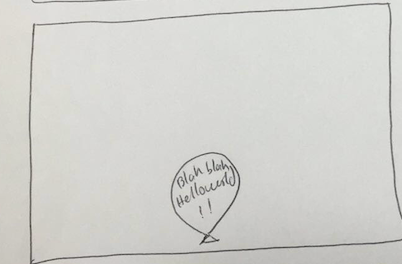 Blah blah
Helloworld
!!